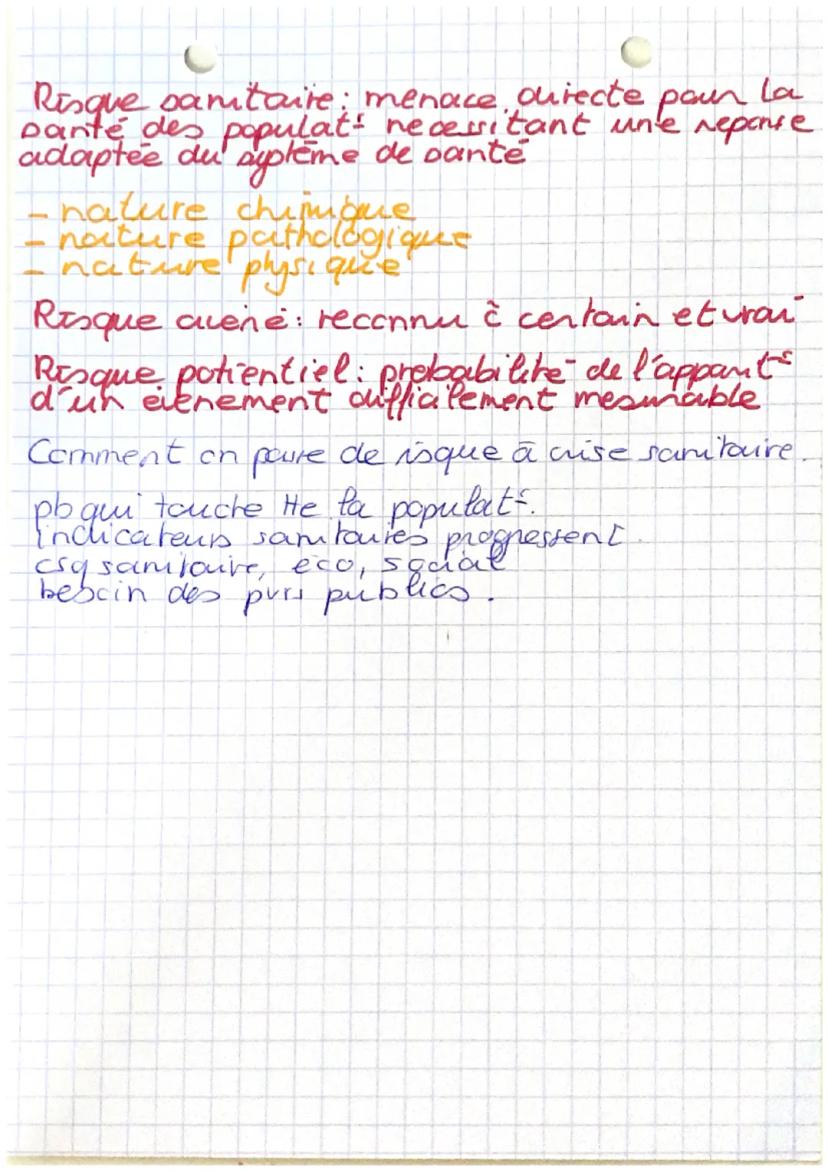 Risque sanitaire : menace directe pour la
santé des populat° necessitant une reponse
adaptée du système de santé
- nature chimique
- nature pathologique
- nature physique
Risque avéré : reconnu c̄ certain et vrai
Risque potientiel : probabilité de l'apparit°
d'un évènement difficilement mesurable
Comment on passe de risque à crise sanitaire.
pb qui touche tte la populat°.
indicateurs sanitaires progressent.
csq sanitaire, éco, social
besoin des pvrs publics.